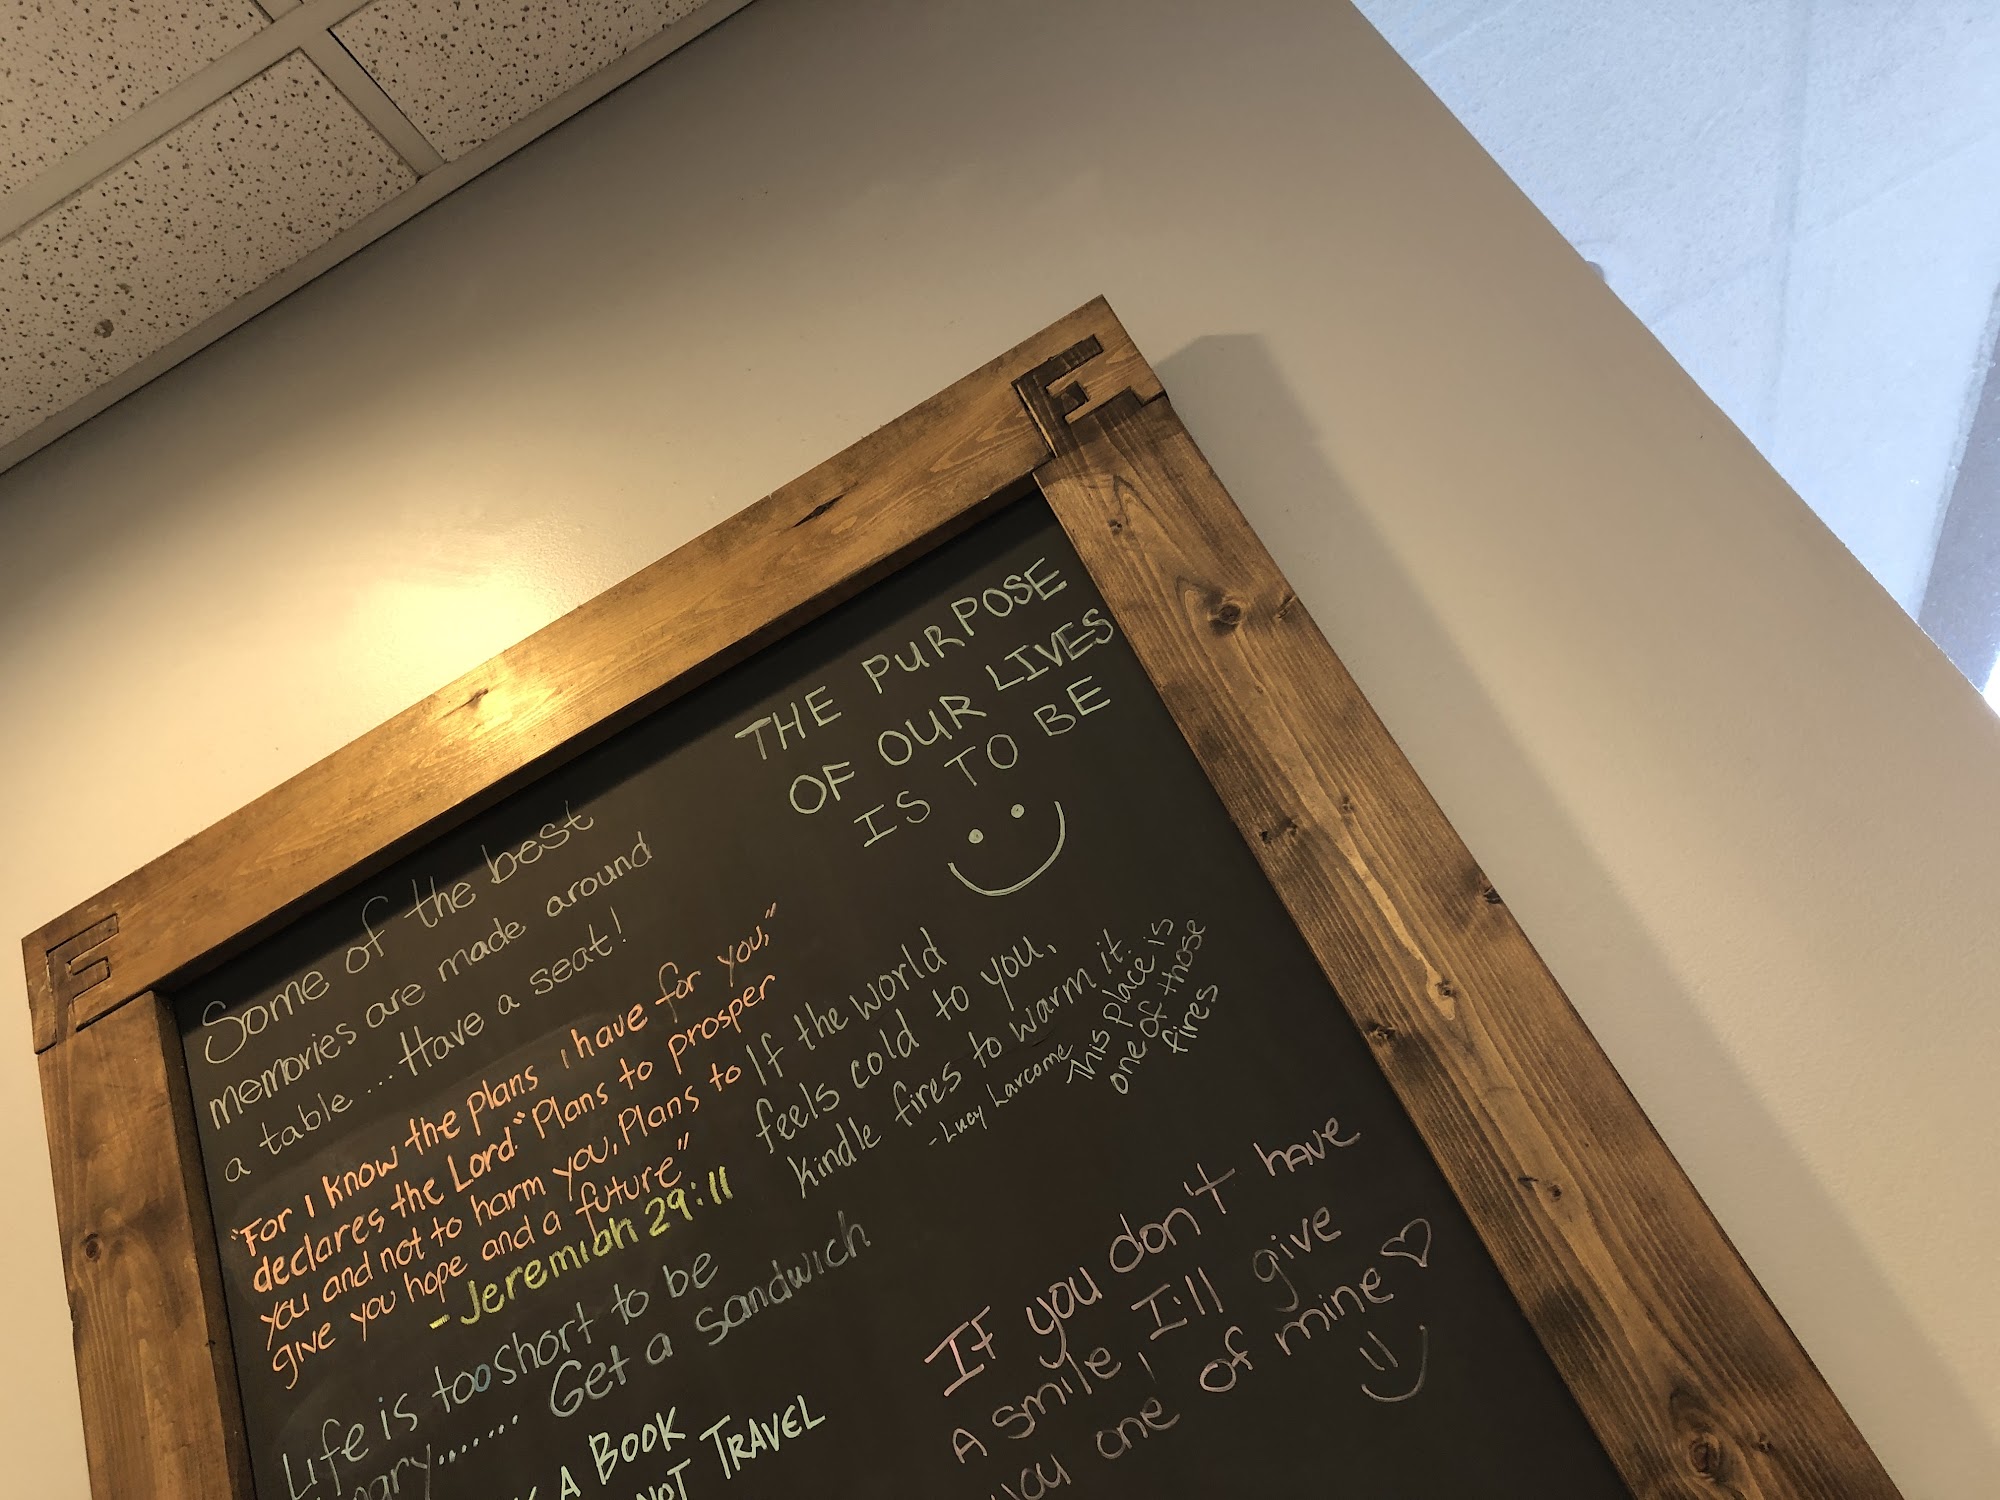 THE PURPOSE
OF OUR LIVES
IS TO BE
Some of the best
memories are made around
a table.... Have a seat!
"For I know the plans i have for you,"
declares the Lord. "Plans to prosper
you and not to harm you, Plans to
give you hope and a future"
- Jeremiah 29:11
If the world
feels cold to you,
kindle fires to warm it
- Lucy Larcome
This place is
one of those
fires
Life is too short to be
Get a sandwich
A BOOK
NOT TRAVEL
If you don't have
A smile, I'll give
you one of mine